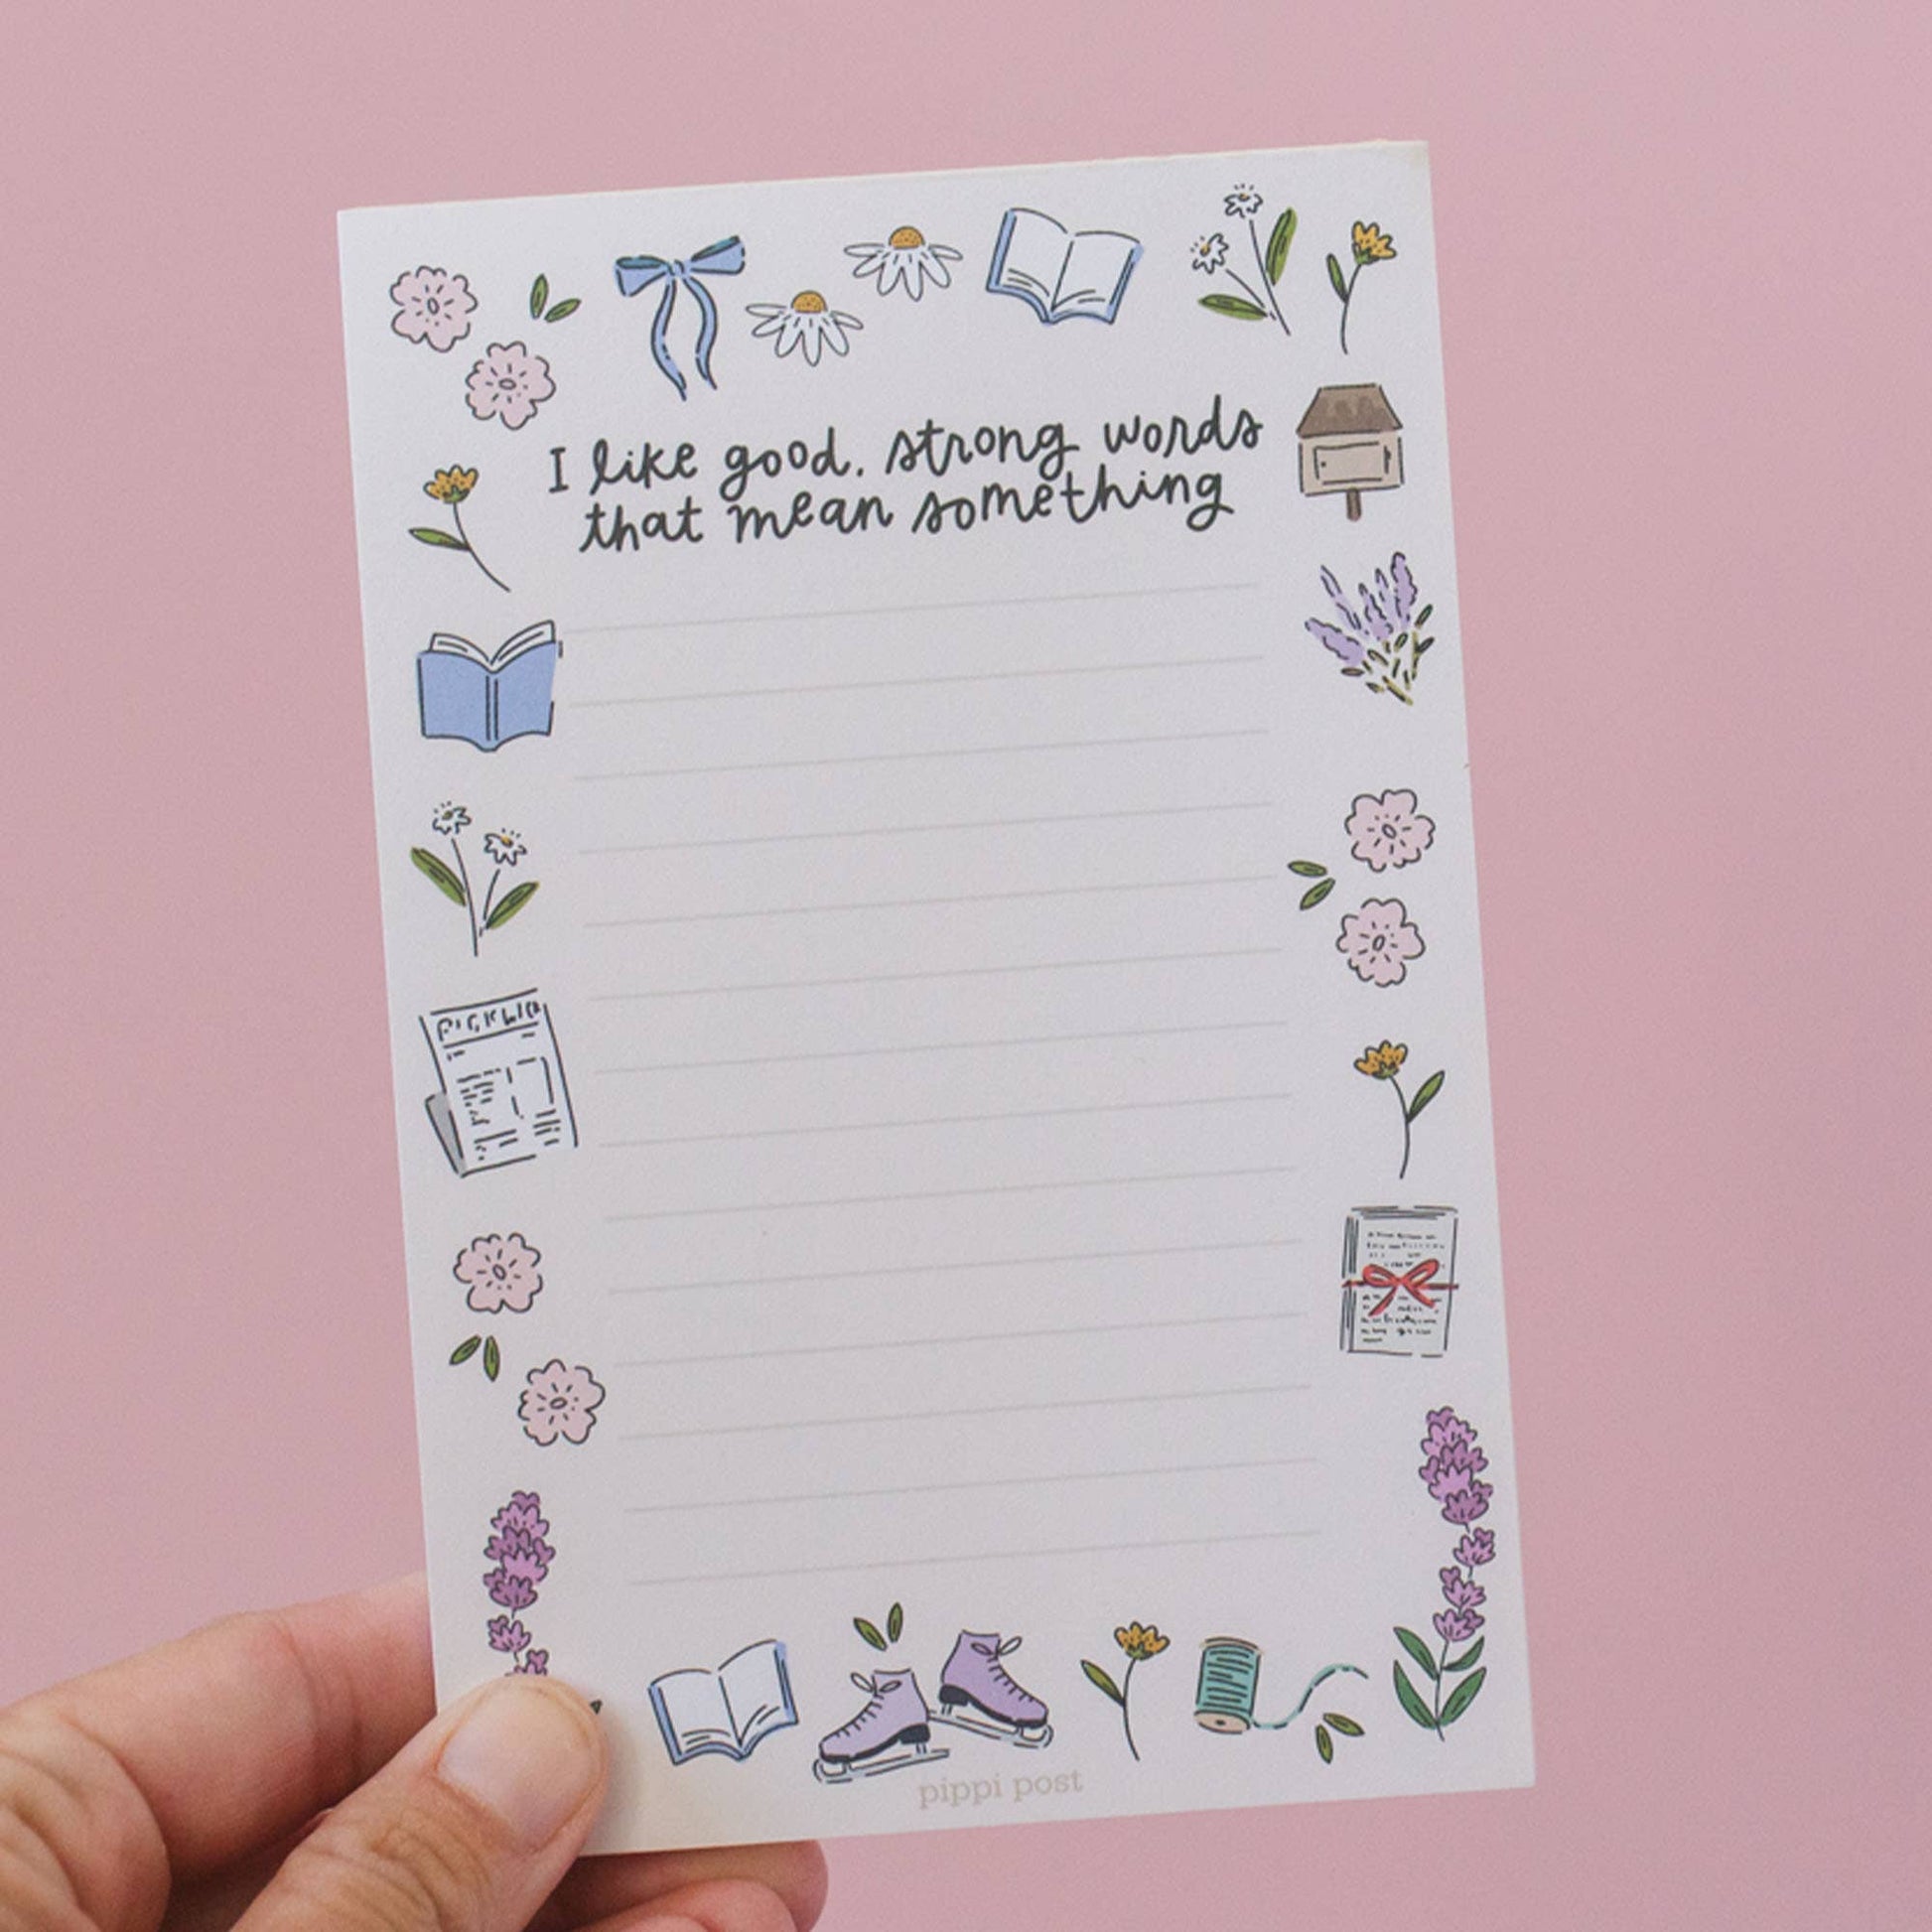 I like good, strong words
that mean something
pippi post